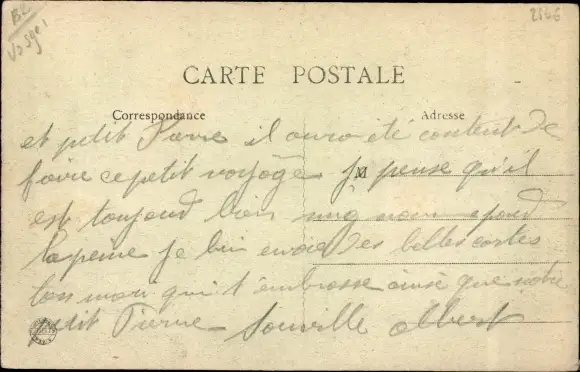 BL
Vosges
2166
CARTE POSTALE
Correspondance
Adresse
M
et petit Pierre il aura été content de
faire ce petit voyage je pense qu'il
est toujour bien
la peine je lui envoie des belles cartes
ton mari qui t'embrasse ainsi que notre
petit Pierre Souville Albert